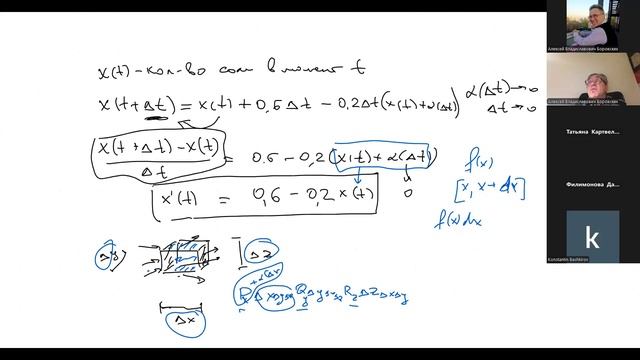 x(t) - кол-во соли в момент t
x(t + Δt) = x(t) + 0,6 Δt - 0,2Δt(x(t) + α(Δt)) α(Δt)→0
Δt→0
x(t + Δt) - x(t)
Δt
= 0.6 - 0,2(x(t) + α(Δt))
0
x'(t) = 0,6 - 0,2 x(t)
f(x)
[x, x + dx]
f(x)dx
Δy
Δz
Δx
Алексей Владиславович Боровских
Алексей Владиславович Боровских
Татьяна Картвел...
Филимонова Да...
k
Konstantin Bashkirov